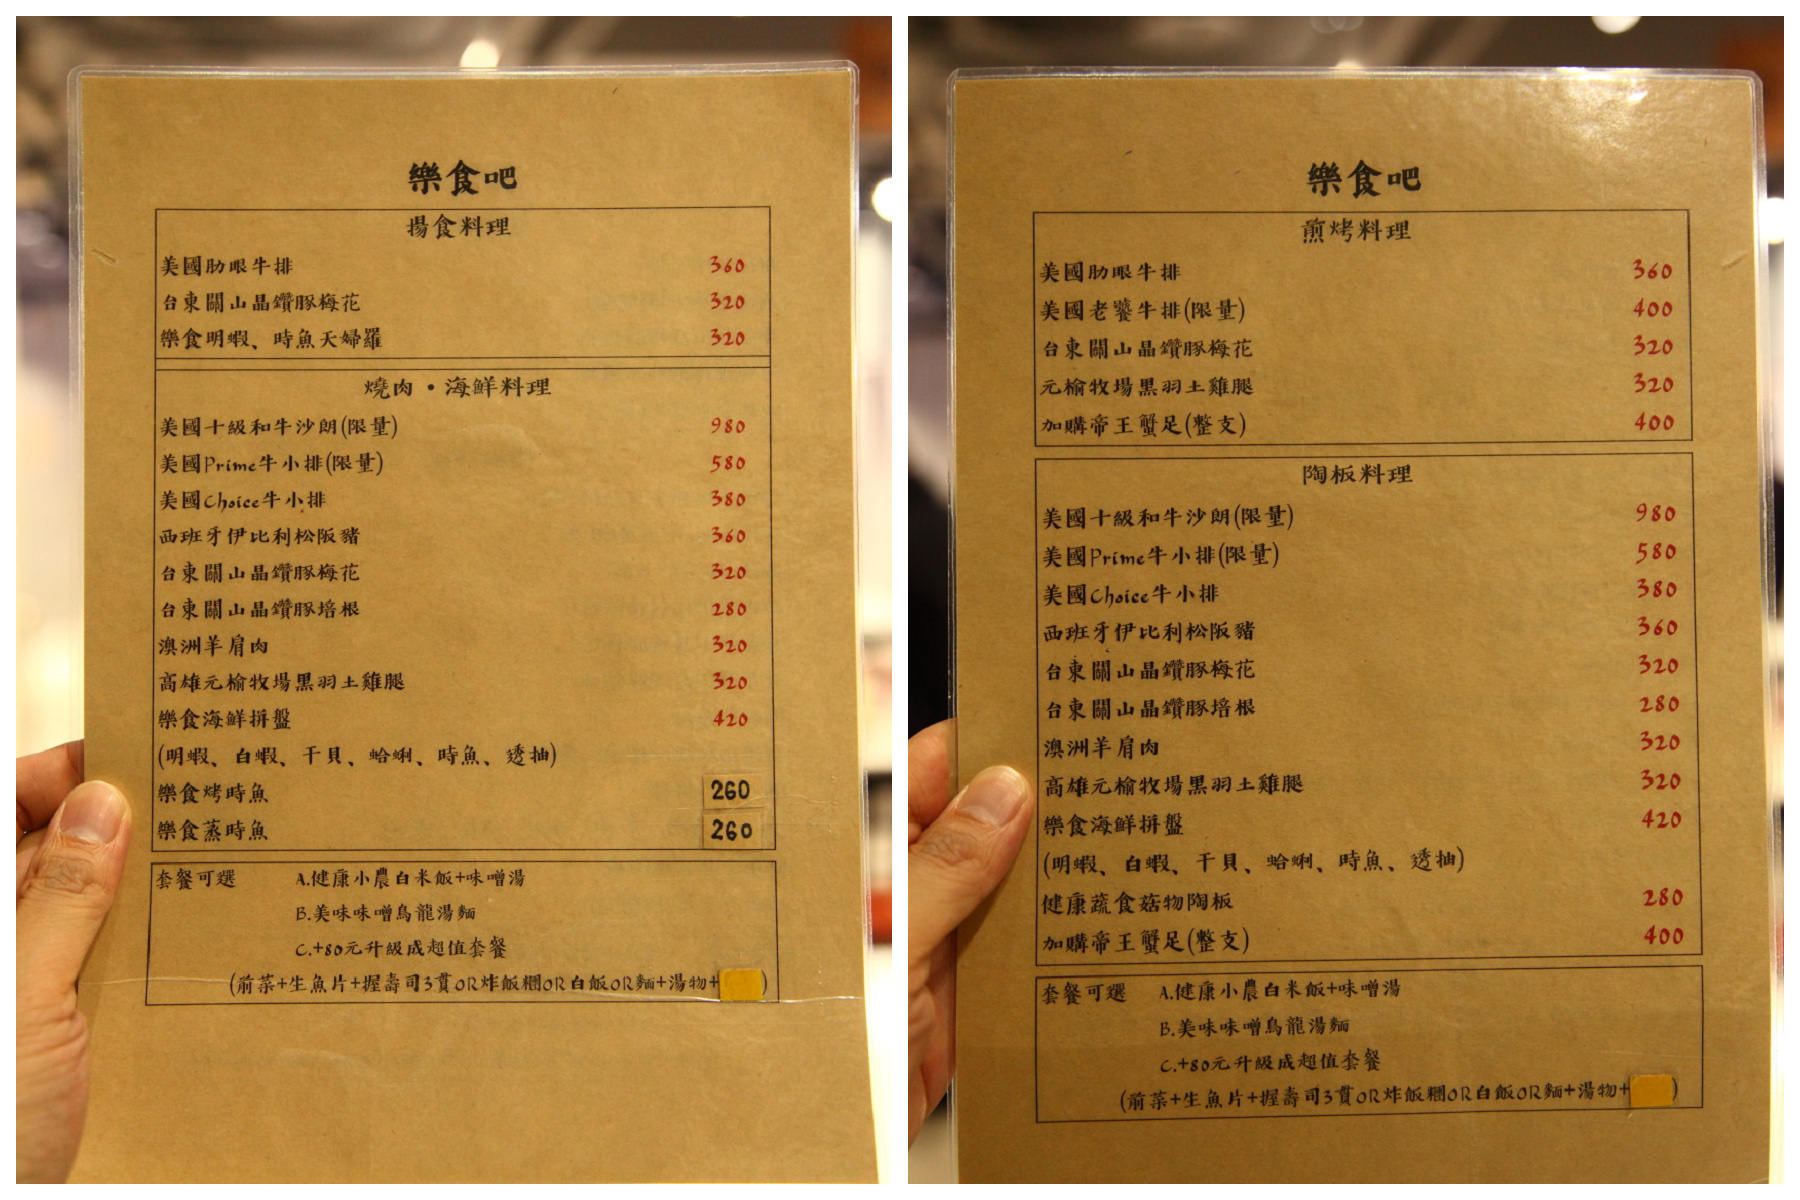 樂食吧
揚食料理
美國肋眼牛排 360
台東關山晶鑽豚梅花 320
樂食明蝦、時魚天婦羅 320
燒肉・海鮮料理
美國十級和牛沙朗(限量) 980
美國Prime牛小排(限量) 580
美國Choice牛小排 380
西班牙伊比利松阪豬 360
台東關山晶鑽豚梅花 320
台東關山晶鑽豚培根 280
澳洲羊肩肉 320
高雄元榆牧場黑羽土雞腿 320
樂食海鮮拼盤 420
(明蝦、白蝦、干貝、蛤蜊、時魚、透抽)
樂食烤時魚 260
樂食蒸時魚 260
套餐可選 A.健康小農白米飯+味噌湯
B.美味味噌烏龍湯麵
C.+80元升級成超值套餐
(前菜+生魚片+握壽司3貫OR炸飯糰OR白飯OR麵+湯物+ )
樂食吧
煎烤料理
美國肋眼牛排 360
美國老饕牛排(限量) 400
台東關山晶鑽豚梅花 320
元榆牧場黑羽土雞腿 320
加購帝王蟹足(整支) 400
陶板料理
美國十級和牛沙朗(限量) 980
美國Prime牛小排(限量) 580
美國Choice牛小排 380
西班牙伊比利松阪豬 360
台東關山晶鑽豚梅花 320
台東關山晶鑽豚培根 280
澳洲羊肩肉 320
高雄元榆牧場黑羽土雞腿 320
樂食海鮮拼盤 420
(明蝦、白蝦、干貝、蛤蜊、時魚、透抽)
健康蔬食菇物陶板 280
加購帝王蟹足(整支) 400
套餐可選 A.健康小農白米飯+味噌湯
B.美味味噌烏龍湯麵
C.+80元升級成超值套餐
(前菜+生魚片+握壽司3貫OR炸飯糰OR白飯OR麵+湯物+ )